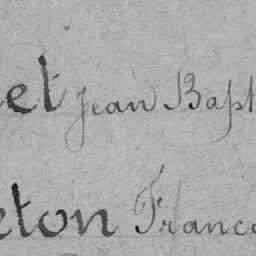 et Jean Bapt
eton Franco